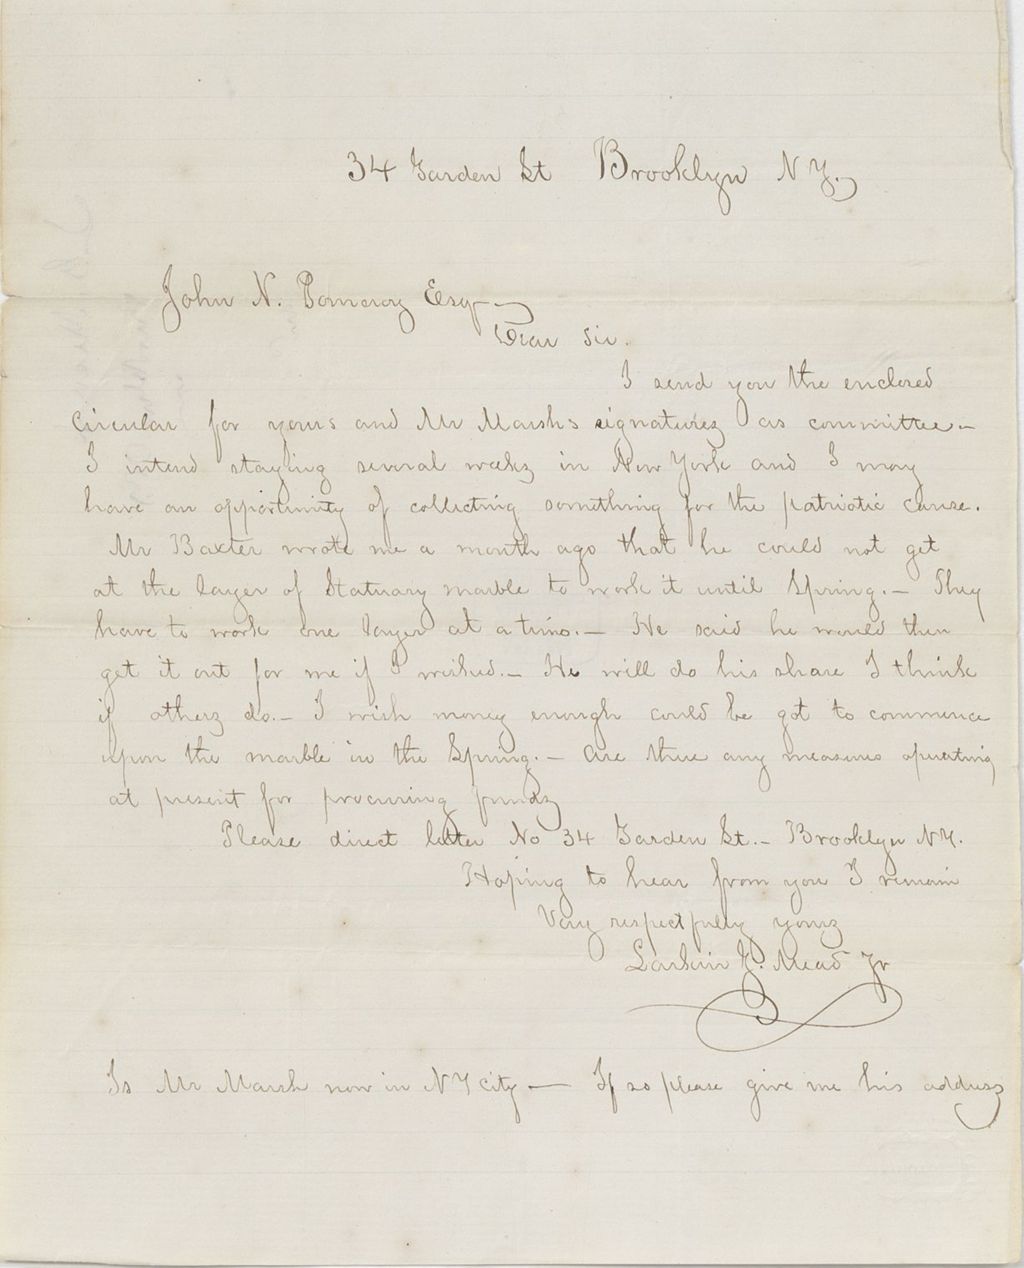 34 Garden St Brooklyn N Y.
John N. Pomeroy Esq
Dear Sir.
I send you the enclosed
circular for yours and Mr Marsh's signatures as committee –
I intend staying several weeks in New York and I may
have an opportunity of collecting something for the patriotic cause.
Mr Baxter wrote me a month ago that he could not get
at the layer of Statuary marble to work it until Spring. – They
have to work one layer at a time. – He said he would then
get it out for me if I wished. – He will do his share I think
if others do. – I wish money enough could be got to commence
upon the marble in the Spring. – Are there any measures operating
at present for procuring funds
Please direct letter No 34 Garden St. – Brooklyn NY.
Hoping to hear from you I remain
Very respectfully yours
Larkin G. Mead Jr
Is Mr Marsh now in N Y city — If so please give me his address